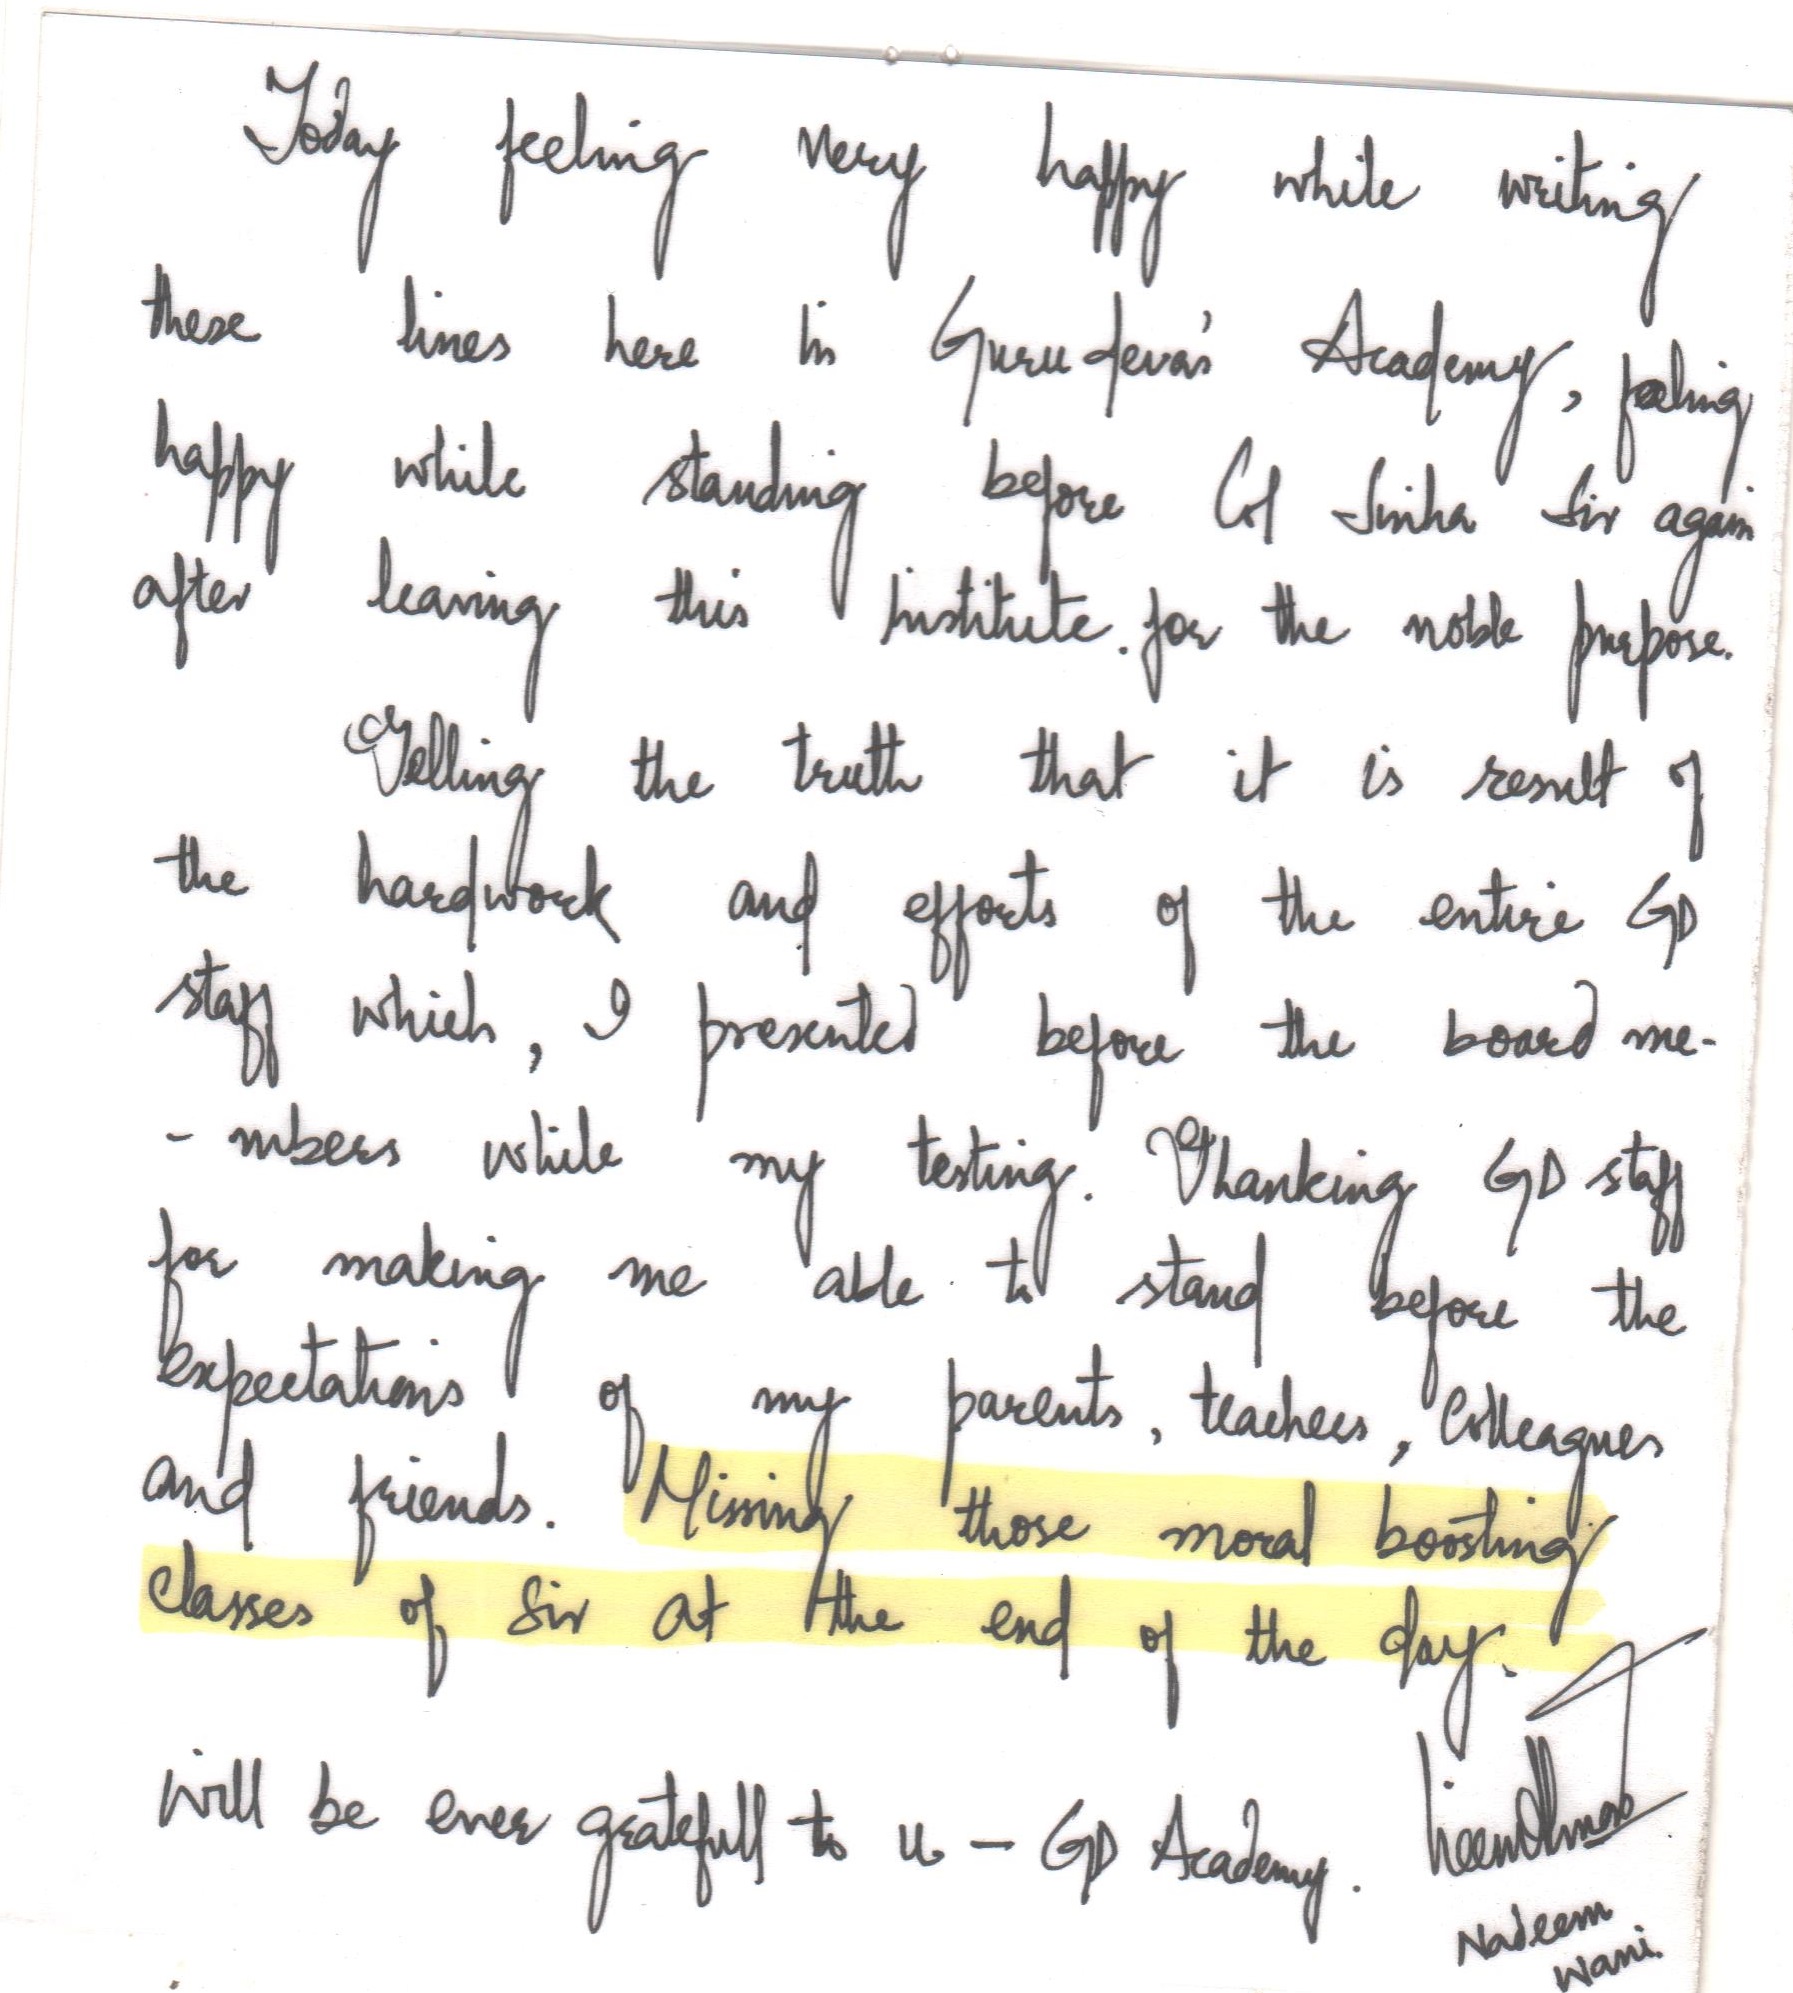 Today feeling very happy while writing
these lines here in Gurudeva's Academy, feeling
happy while standing before Col Sinha Sir again
after leaving this institute. for the noble purpose.
Telling the truth that it is result of
the hardwork and efforts of the entire GD
staff which, I presented before the board me-
- mbers while my testing. Thanking GD staff
for making me able to stand before the
expectations of my parents, teachers, Colleagues
and friends. Missing those moral boosting
classes of Sir at the end of the day.
will be ever gratefull to u - GD Academy.
Nadeem
Wani.